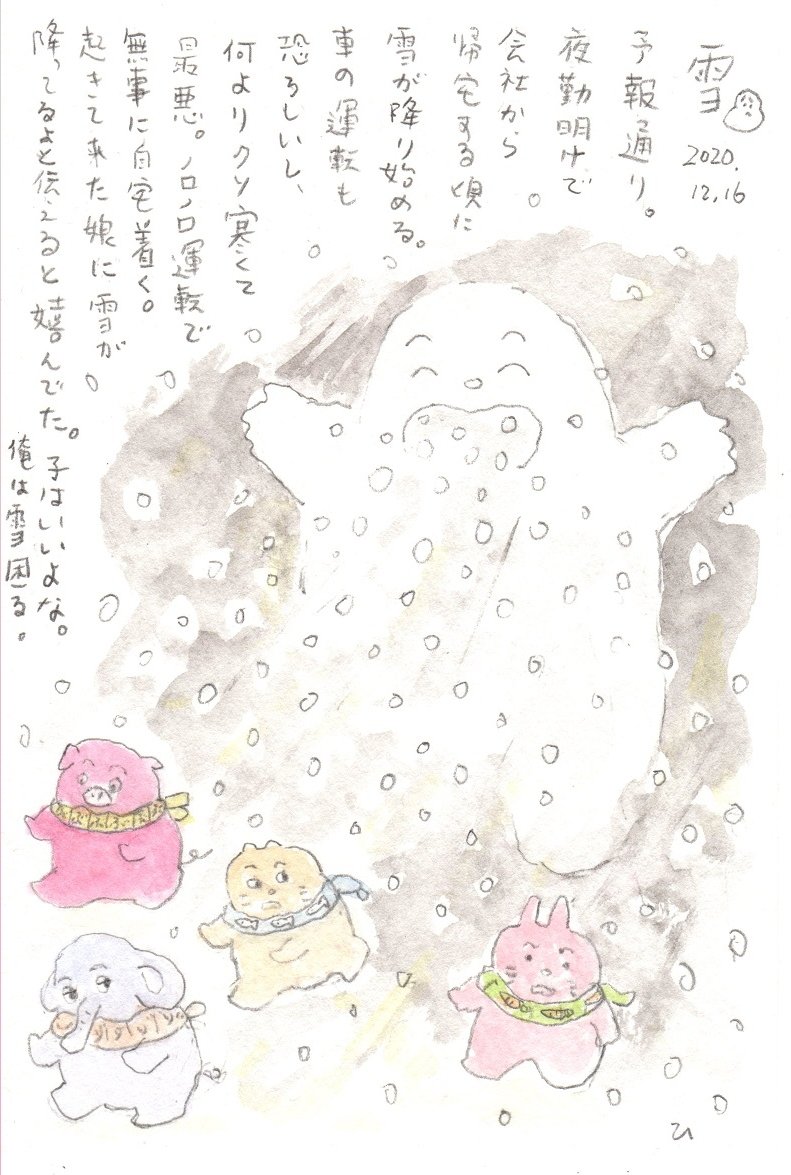 雪
2020.
12,16
予報通り。
夜勤明けで
会社から
帰宅する頃に
雪が降り始める。
車の運転も
恐ろしいし、
何よりクソ寒くて
最悪。ノロノロ運転で
無事に自宅着く。
起きて来た娘に雪が
降ってるよと伝えると嬉んでた。子はいいよな。
俺は雪困る。
リンゴ
ひ